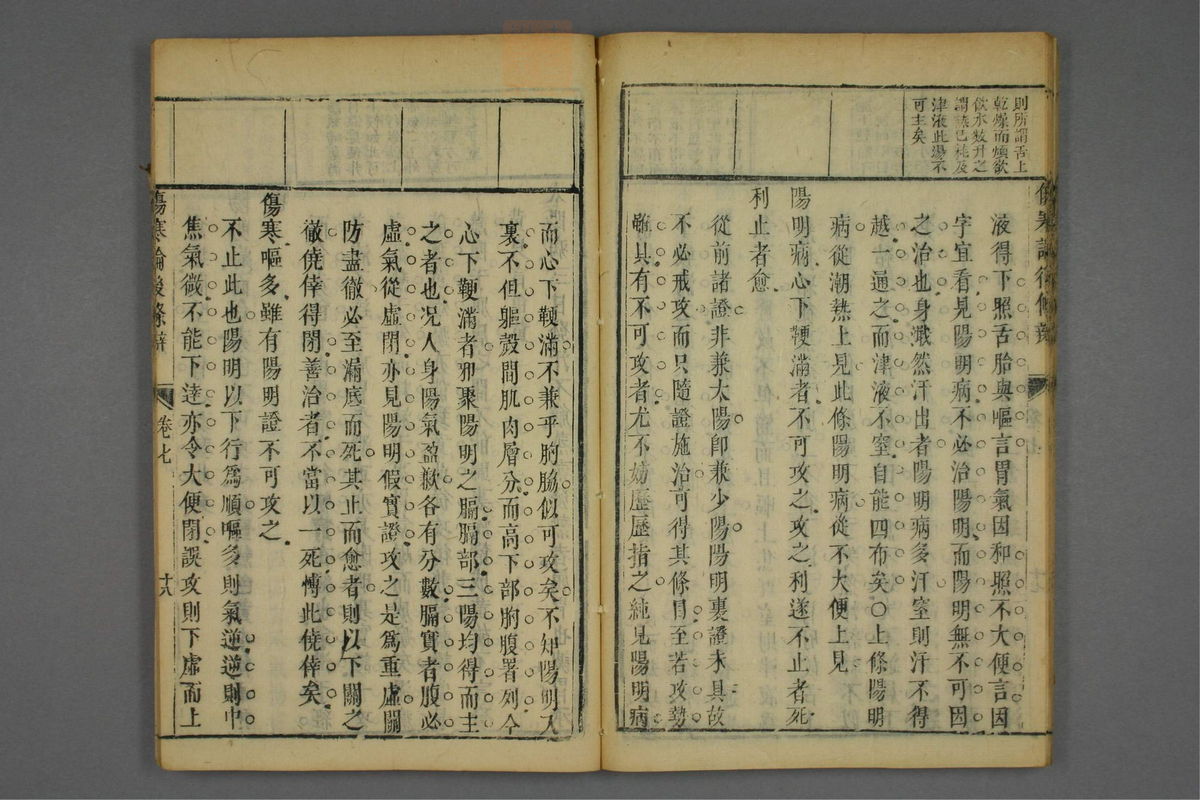 則所謂舌上
乾燥而煩欲
飲水數升之
謂熱已耗及
津液此湯不
可主矣
液得下照舌胎與嘔言胃氣因和照不大便言因
字宜看見陽明病不必治陽明而陽明無不可因
之治也身濈然汗出者陽明病多汗窒則汗不得
越一通之而津液不窒自能四布矣〇上條陽明
病從潮熱上見此條陽明病從不大便上見
陽明病心下鞕滿者不可攻之攻之利遂不止者死
利止者愈
從前諸證非兼太陽卽兼少陽陽明裏證未具故
不必戒攻而只隨證施治可得其條目至若攻勢
雖具有不可攻者尤不妨歷歷指之純見陽明病
而心下鞕滿不兼乎胸脇似可攻矣不知陽明入
裏不但軀殼間肌肉層分而高下部胸腹署列今
心下鞕滿者邪聚陽明之膈膈部三陽均得而主
之者也况人身陽氣盈歉各有分數膈實者腹必
虛氣從虛閉亦見陽明假實證攻之是為重虛關
防盡徹必至漏底而死其止而愈者則以下關之
徹僥倖得閉善治者不當以一死愽此僥倖矣
傷寒嘔多雖有陽明證不可攻之
不止此也陽明以下行為順嘔多則氣逆逆則中
焦氣微不能下達亦令大便閉誤攻則下虛而上
傷寒論後條辯
卷七
十八